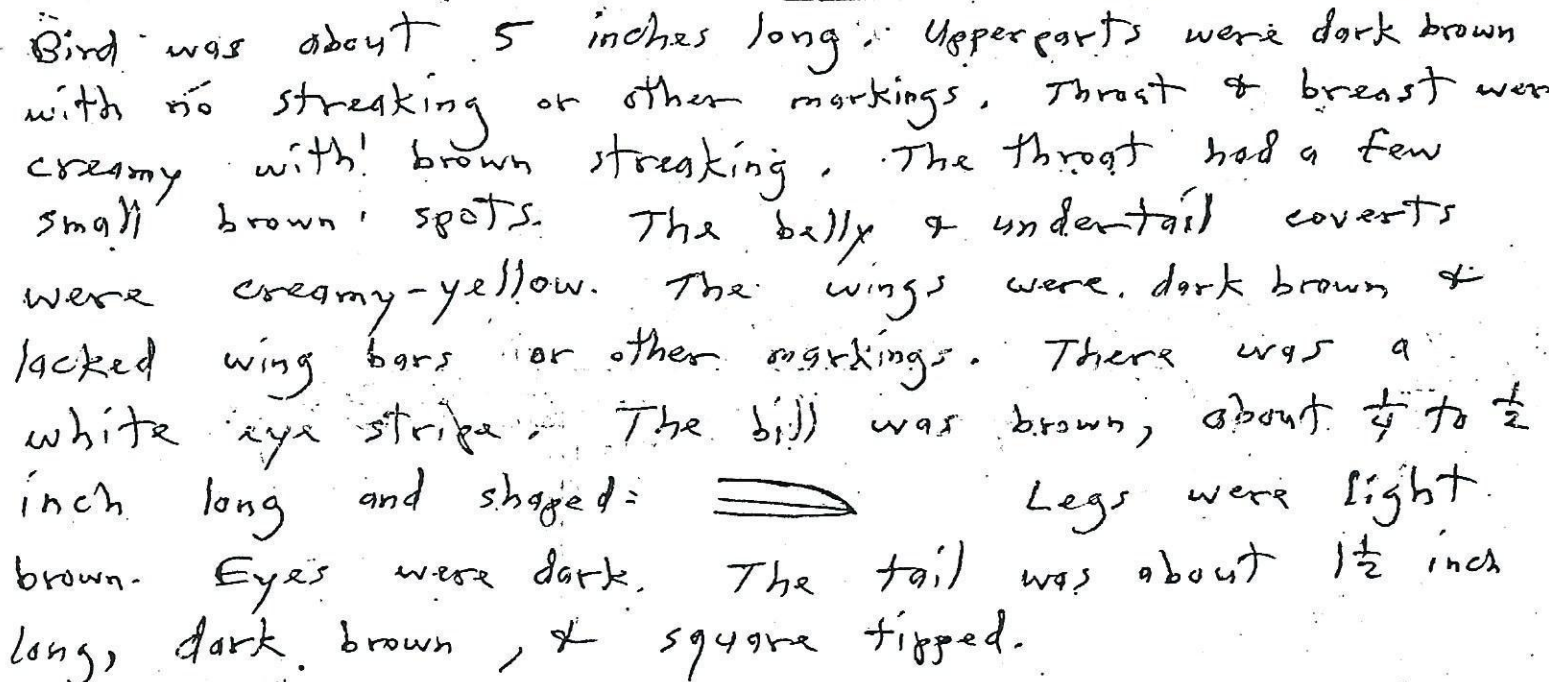 Bird was about 5 inches long. Upperparts were dark brown
with no streaking or other markings. Throat & breast wer
creamy with brown streaking. The throat had a few
small brown spots. The belly & undertail coverts
were creamy-yellow. The wings were dark brown &
lacked wing bars or other markings. There was a
white eye stripe. The bill was brown, about 1/4 to 1/2
inch long and shaped: Legs were light
brown. Eyes were dark. The tail was about 1 1/2 inch
long, dark brown, & square tipped.